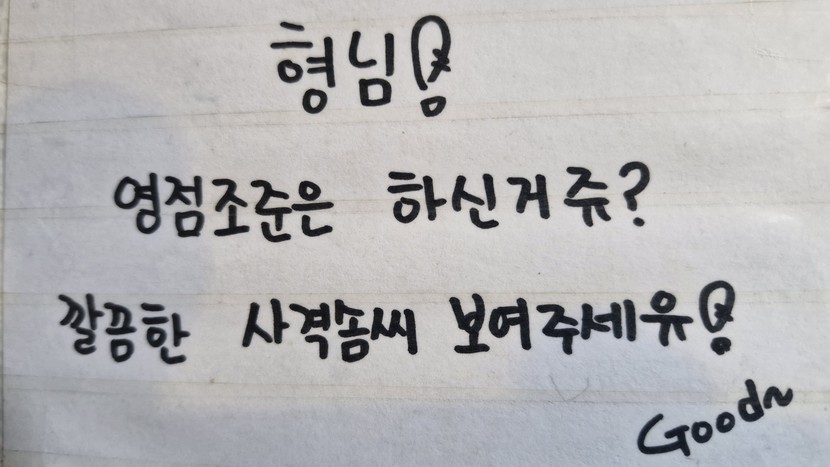 형님!
영점조준은 하신거쥬?
깔끔한 사격솜씨 보여주세유!
Good~